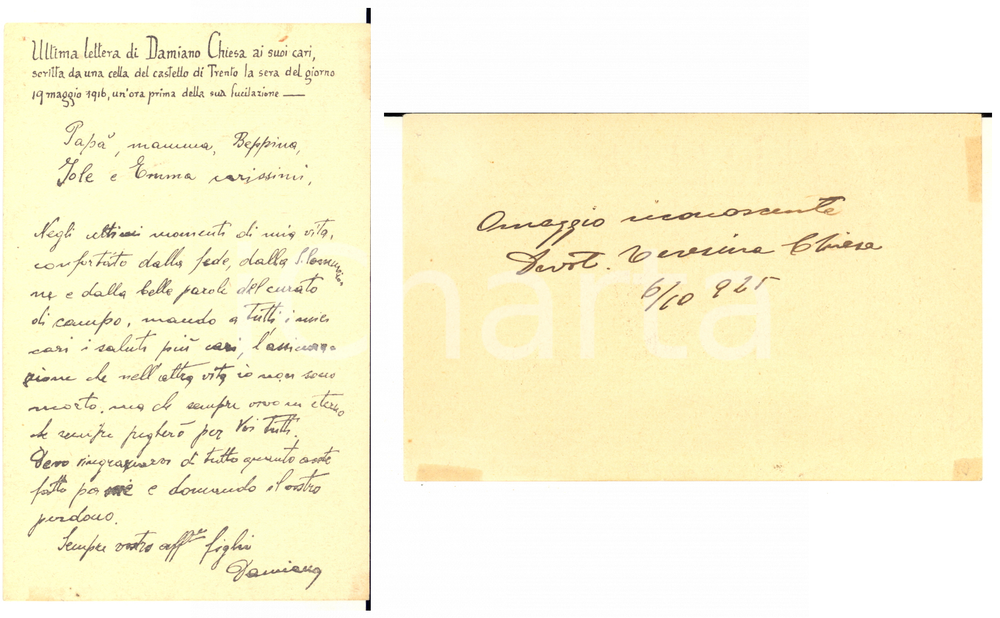 Ultima lettera di Damiano Chiesa ai suoi cari,
scritta da una cella del castello di Trento la sera del giorno
19 maggio 1916, un'ora prima della sua fucilazione —
Papà, mamma, Beppina,
Jole e Emma carissimi,
Negli ultimi momenti di mia vita,
confortato dalla fede, dalla S. Comunio
ne e dalla belle parole del curato
di campo, mando a tutti i miei
cari i saluti più cari, l'assicura-
zione che nell'altra vita io non sono
morto, ma che sempre vivo in eterno
che sempre pregherò per Voi tutti.
Devo ringraziarvi di tutto quanto avete
fatto per me e domando il vostro
perdono.
Sempre vostro aff.mo figlio
Damiano
Omaggio riconoscente
Devot. Teresina Chiesa
6/10 925
charta